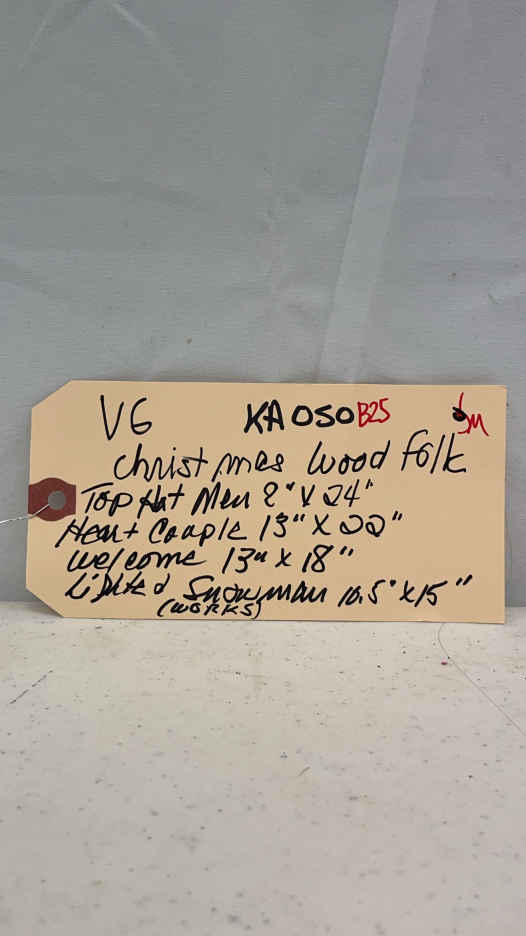 V6 KA050 B25 SM
Christmas Wood folk
Top Hat Men 8" X 24"
Heart Couple 13" X 22"
Welcome 13" X 18"
Lighted Snowman 10.5" X 15"
(WORKS)